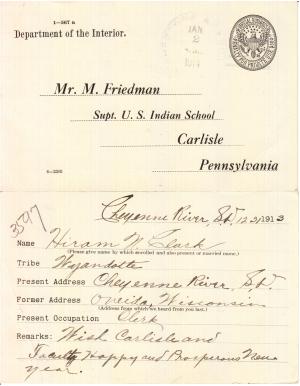 1-567 a
Department of the Interior.
JAN
2
Mr. M. Friedman
Supt. U. S. Indian School
Carlisle
Pennsylvania
3597
Cheyenne River, S.D. 12.31.1913
Name Hiram W. Clark
(Please give name by which enrolled and also present or married name.)
Tribe Wyandotte
Present Address Cheyenne River, S.D.
Former Address Oneida, Wisconsin
(Address from which we heard from you last.)
Present Occupation Clerk
Remarks: Wish Carlisle and
Faculty Happy and Prosperous New
year.